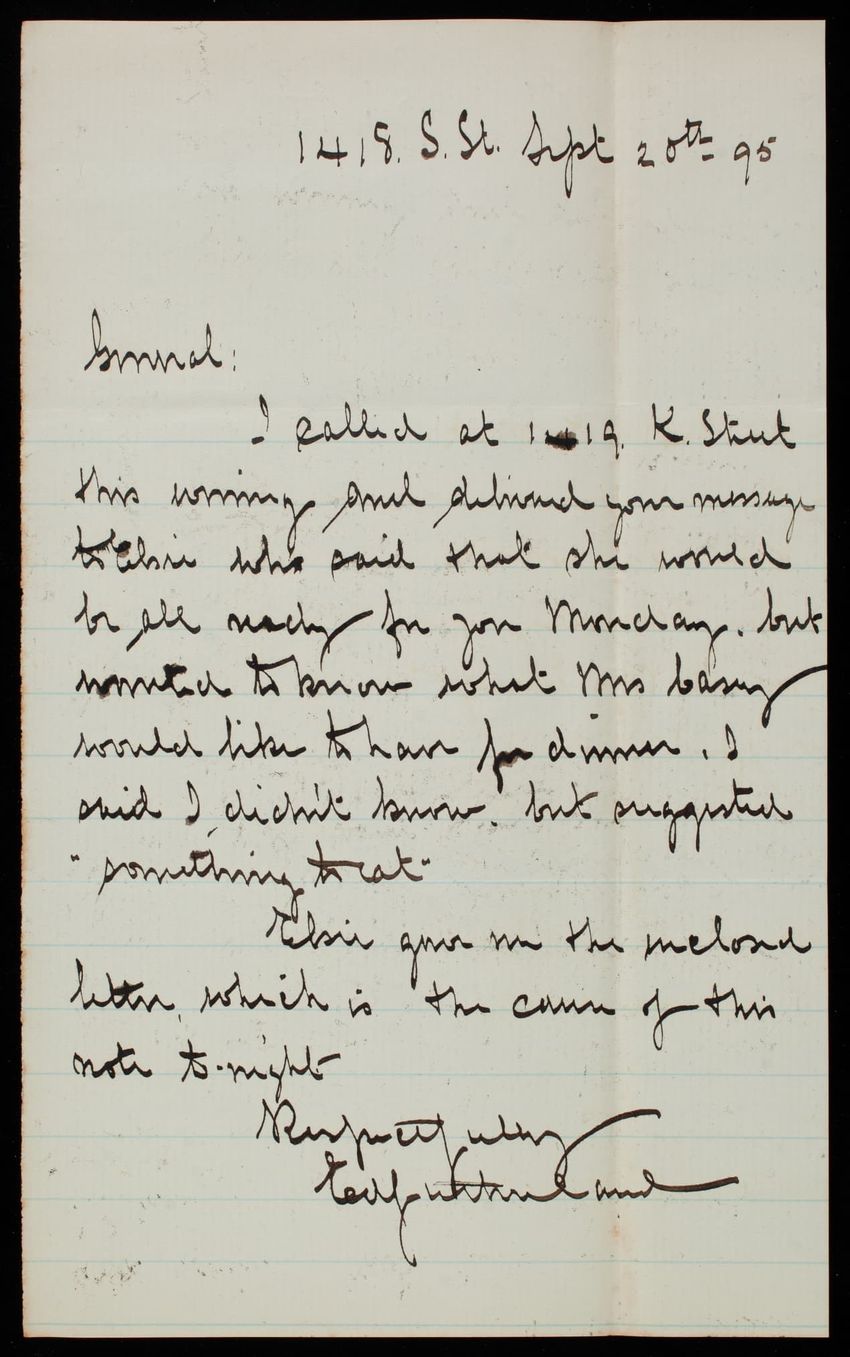 1418. S. St. Sept 20th 95
General:
I called at 1419. K. Street
this evening and delivered your message
to Elsie who said that she would
be all ready for you Monday. but
wanted to know what Mrs Casey
would like to have for dinner. I
said I didn't know. but suggested
"something to eat"
Elsie gave me the inclosed
letter, which is the cause of this
note to-night
Respectfully
Sutherland